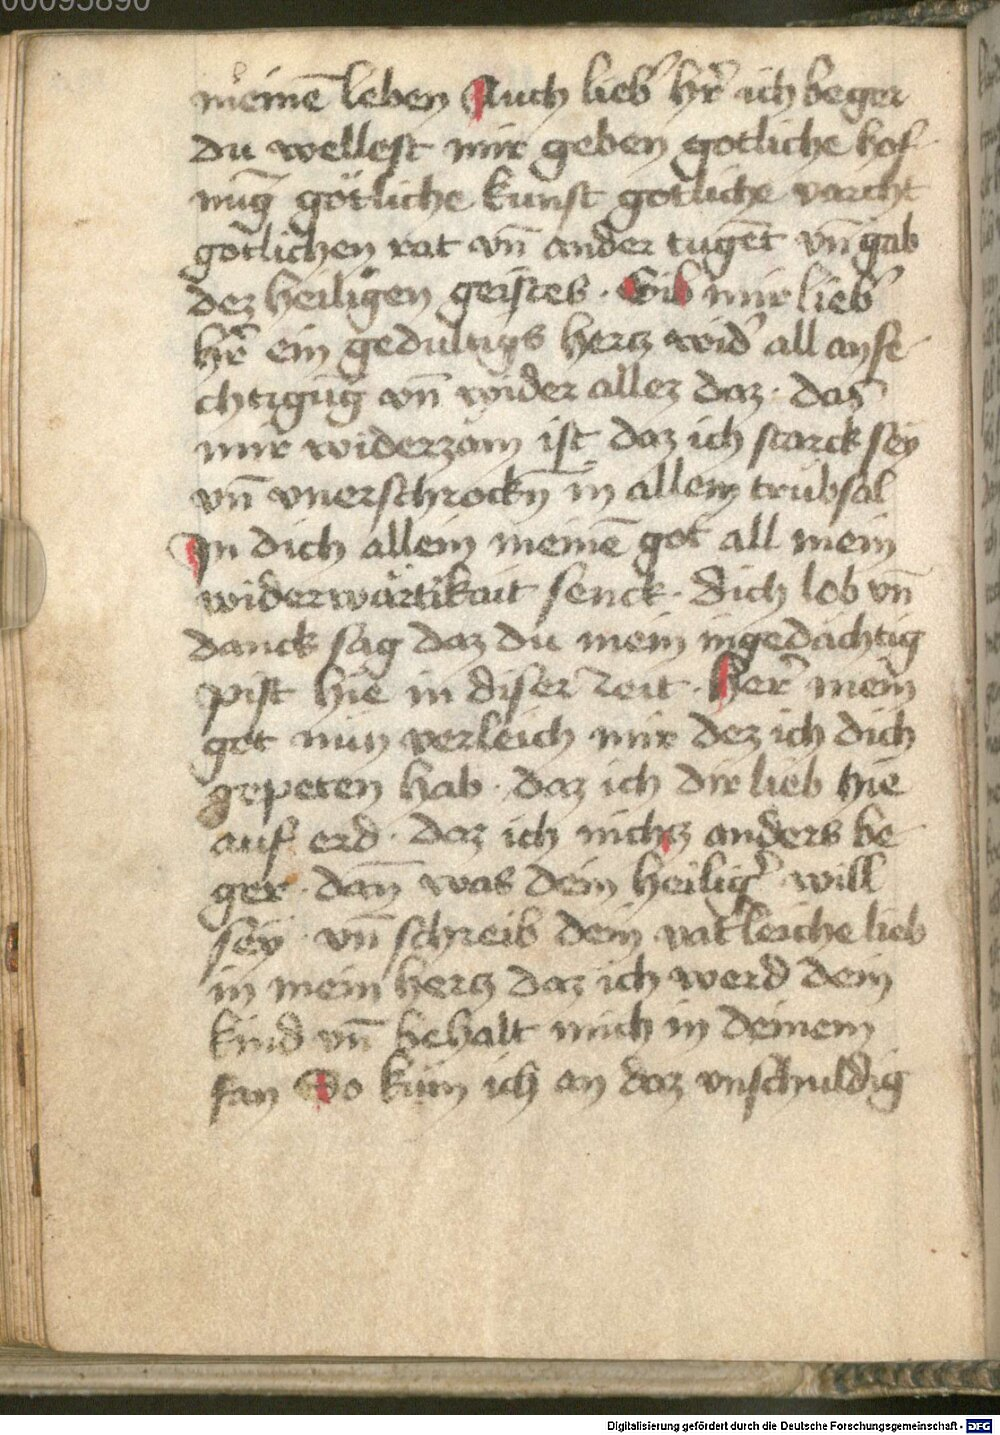 00095890
meinē leben Auch lieb' hr̄ ich beger
du wellest mir geben gotliche hof
nūg götliche kunst gotliche vorcht
gotlichen rat vn̄ ander tugēt vn̄ gab
dez heiligen geistes · Gib mir lieb'
hr̄ ein gedultigs hercz wid' all anfe
chtigūg vn̄ wider allez daz · das
mir widerzam ist daz ich starck sey
vn̄ vnerschrockn̄ in allem trübsal
In dich allein meinē got all mein
widerwärtikait senck · dich lob vn̄
danck sag daz du mein ingedächtig
pist hie in diser zeit · Her̄ mein
got nun verleich mir dez ich dich
gepeten hab · daz ich dir lieb hie
auf erd · daz ich nichcz anders be
ger · dan̄ was dein heilig' will
sey · vn̄ schreib dein vat'leiche lieb
in mein hercz daz ich werd dein
kind vn̄ behalt mich in deinem
fan Do kum ich an daz vnschuldig
Digitalisierung gefördert durch die Deutsche Forschungsgemeinschaft - DFG